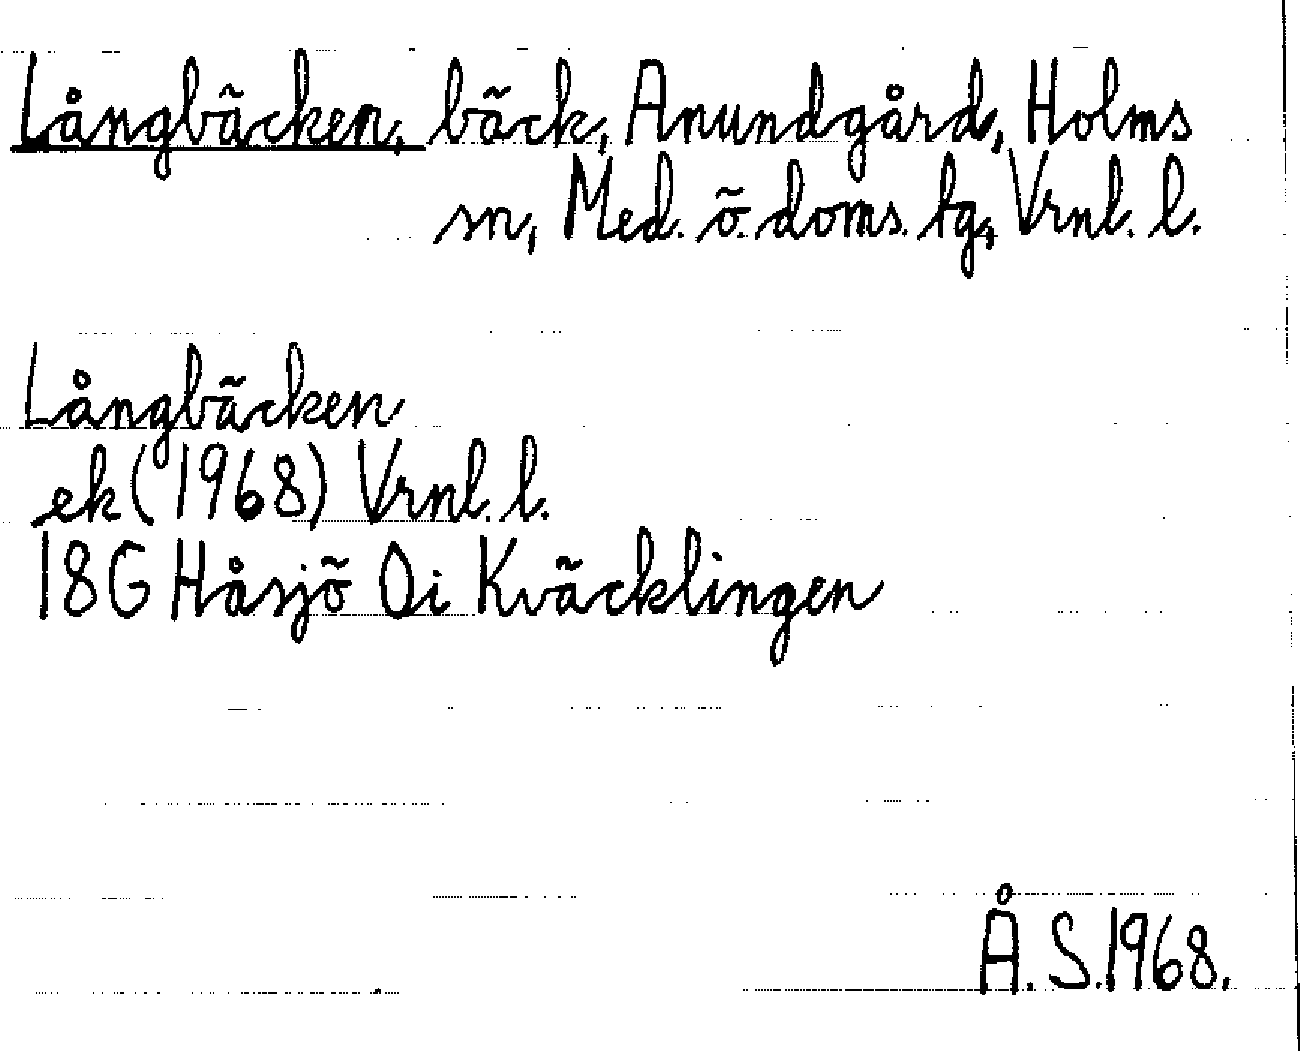 Långbäcken, bäck, Anundgård, Holms
sn, Med. ö. doms. tg, Vrnl. l.
Långbäcken
ek (1968) Vrnl. l.
18G Håsjö 0i Kväcklingen
Å. S. 1968.